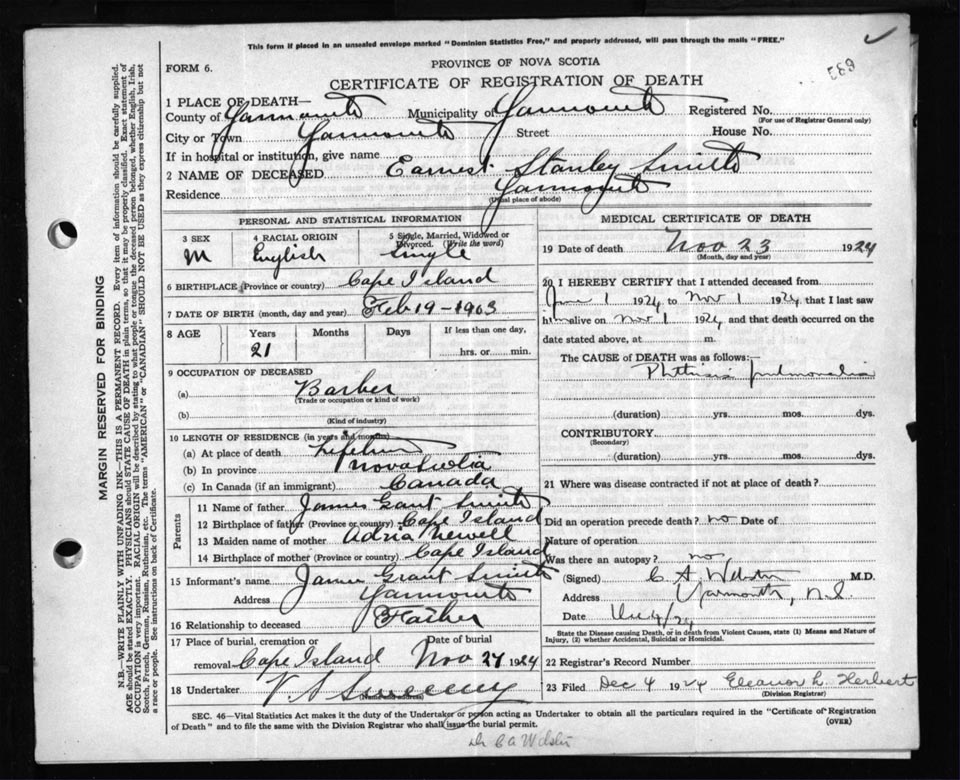 This form if placed in an unsealed envelope marked "Dominion Statistics Free," and properly addressed, will pass through the mails "FREE."
FORM 6.
PROVINCE OF NOVA SCOTIA
CERTIFICATE OF REGISTRATION OF DEATH
1 PLACE OF DEATH—
County of Yarmouth Municipality of Yarmouth Registered No.
(For use of Registrar General only)
City or Town Yarmouth Street House No.
If in hospital or institution, give name
2 NAME OF DECEASED Earnest Stanley Smith
Residence Yarmouth
(Usual place of abode)
PERSONAL AND STATISTICAL INFORMATION
3 SEX 4 RACIAL ORIGIN 5 Single, Married, Widowed or Divorced. (Write the word)
M English Single
6 BIRTHPLACE (Province or country) Cape Island
7 DATE OF BIRTH (month, day and year) Feb 19 - 1903
8 AGE Years Months Days If less than one day,
21 hrs. or min.
9 OCCUPATION OF DECEASED
(a) Barber
(Trade or occupation or kind of work)
(b)
(Kind of industry)
10 LENGTH OF RESIDENCE (in years and months)
(a) At place of death
(b) In province Nova Scotia
(c) In Canada (if an immigrant) Canada
Parents
11 Name of father James Grant Smith
12 Birthplace of father (Province or country) Cape Island
13 Maiden name of mother Adria Newell
14 Birthplace of mother (Province or country) Cape Island
15 Informant's name James Grant Smith
Address Yarmouth
16 Relationship to deceased Father
17 Place of burial, cremation or Date of burial
removal Cape Island Nov 27 1924
18 Undertaker V. S. Sweeney
(Name and address)
MEDICAL CERTIFICATE OF DEATH
19 Date of death Nov 23 1924
(Month, day and year)
20 I HEREBY CERTIFY that I attended deceased from
June 1 1924 to Nov 1 1924 that I last saw
him alive on Nov 1 1924 and that death occurred on the
date stated above, at m.
The CAUSE of DEATH was as follows:—
Phthisis pulmonalis
(duration) yrs. mos. dys.
CONTRIBUTORY
(Secondary)
(duration) yrs. mos. dys.
21 Where was disease contracted if not at place of death?
Did an operation precede death? no Date of
Nature of operation
Was there an autopsy? no
(Signed) C A Webster M.D.
Address Yarmouth, N.S.
Date Dec 4/24
State the Disease causing Death, or in death from Violent Causes, state (1) Means and Nature of
Injury, (2) whether Accidental, Suicidal or Homicidal.
22 Registrar's Record Number
23 Filed Dec 4 1924 Eleanor L. Herbert
(Division Registrar)
SEC. 46—Vital Statistics Act makes it the duty of the Undertaker or person acting as Undertaker to obtain all the particulars required in the "Certificate of Registration
of Death" and to file the same with the Division Registrar who shall issue the burial permit.
(OVER)
Dr C A Webster
MARGIN RESERVED FOR BINDING
N.B.—WRITE PLAINLY WITH UNFADING INK—THIS IS A PERMANENT RECORD. Every item of information should be carefully supplied.
AGE should be stated EXACTLY. PHYSICIANS should STATE CAUSE OF DEATH in plain terms, so that it may be properly classified. Exact statement of
OCCUPATION is very important. RACIAL ORIGIN will be described by stating to what people or tongue the deceased person belonged, whether English, Irish,
Scotch, French, German, Russian, Ruthenian, etc. The terms "AMERICAN" or "CANADIAN" SHOULD NOT BE USED as they express citizenship but not
a race or people. See instructions on back of Certificate.